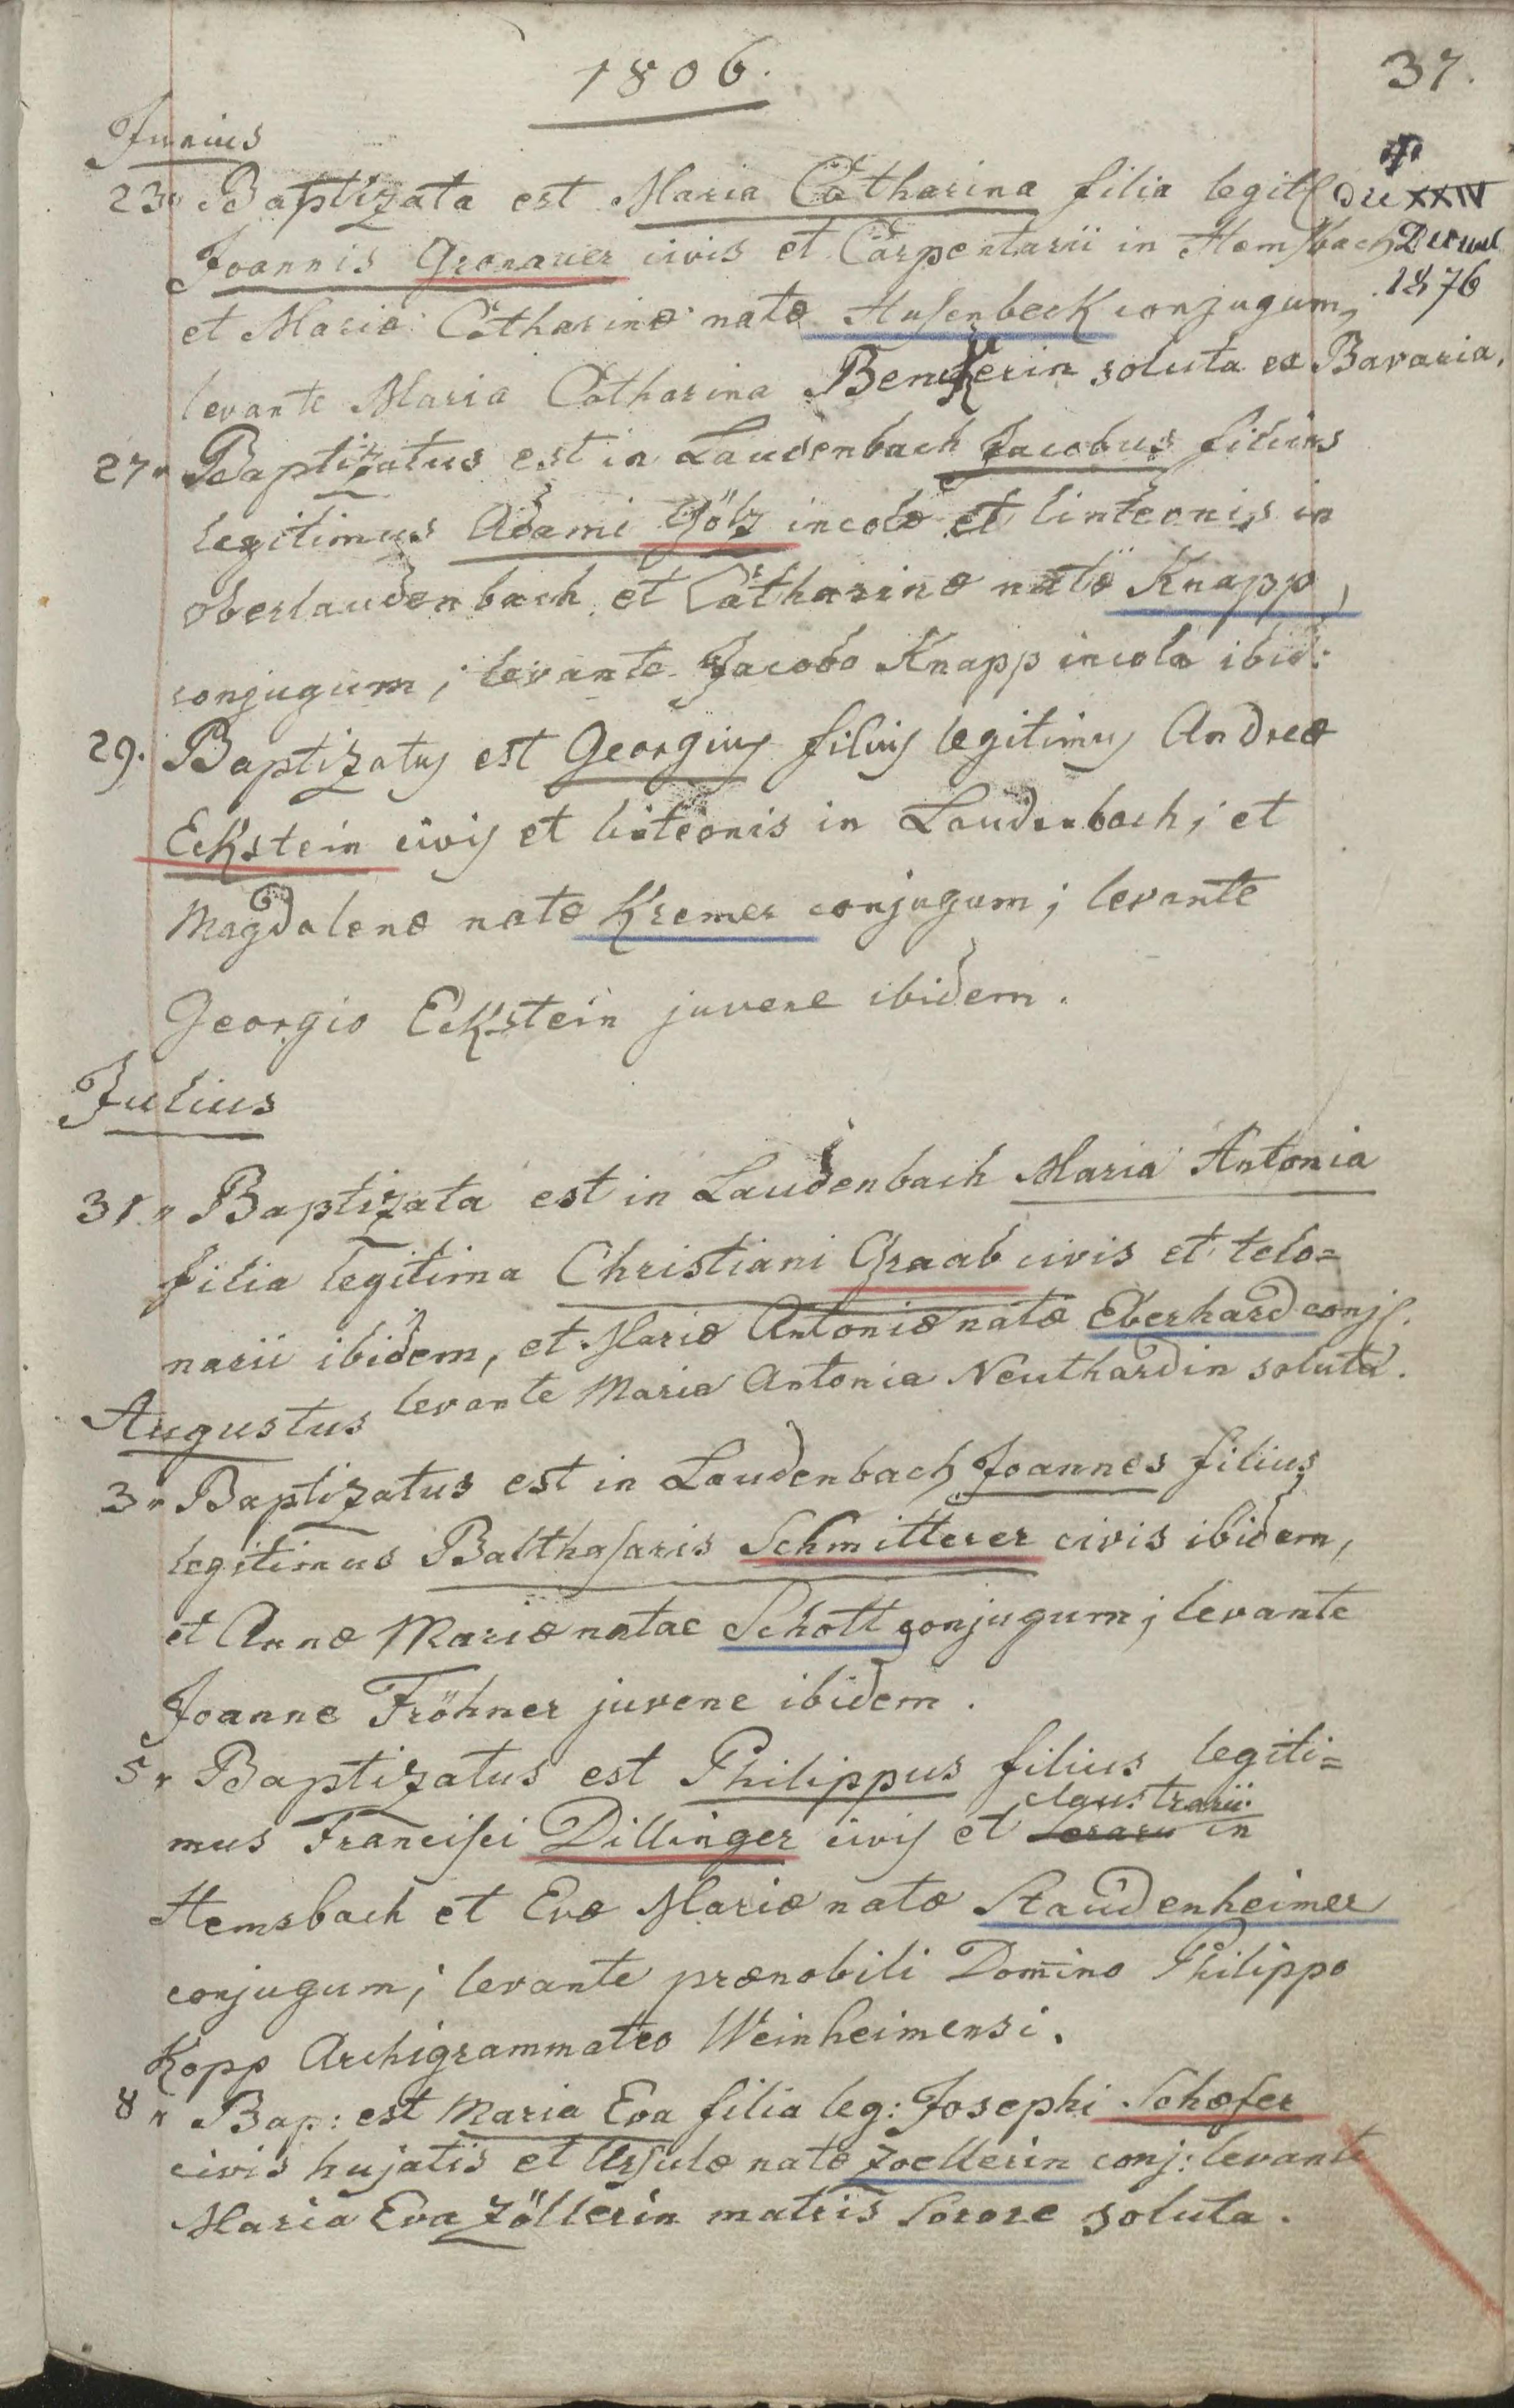 1806.
37.
Junius
23" Baptizata est Maria Catharina filia legit.
Joannis Gronauer civis et Carpentarii in Hemsbach
et Mariæ Catharinæ natæ Husenbeck conjugum,
levante Maria Catharina soluta ex Bavaria.
✝
die XXIV
1876
27" Baptizatus est in Laudenbach Jacobus filius
legitimus Adami Götz incolæ et linteonis in
oberlaudenbach et Catharinæ natæ Knapp,
conjugum; levante Jacobo Knapp incola ibid:
29. Baptizatus est Georgius filius legitimus Andreæ
Eckstein civis et linteonis in Laudenbach; et
Magdalenæ natæ Kremer conjugum; levante
Georgio Eckstein juvene ibidem.
Julius
31" Baptizata est in Laudenbach Maria Antonia
filia legitima Christiani Graab civis et telo=
narii ibidem, et Mariæ Antoniæ natæ Eberhard conj.
levante Maria Antonia Neuthardin soluta.
Augustus
3" Baptizatus est in Laudenbach Joannes filius
legitimus Balthasaris Schmitterer civis ibidem,
et Annæ Mariæ natae Schott conjugum; levante
Joanne Fröhner juvene ibidem.
5" Baptizatus est Philippus filius legiti=
claustrarii
mus Francisci Dillinger civis et serarii in
Hemsbach et Evæ Mariæ natæ Staudenheimer
conjugum; levante prænobili Domino Philippo
Kopp Archigrammateo Weinheimensi.
8" Bap: est Maria Eva filia leg: Josephi Schæfer
civis hujatis et Ursulæ natæ Zoellerin conj: levante
Maria Eva Zöllerin matris sorore soluta.